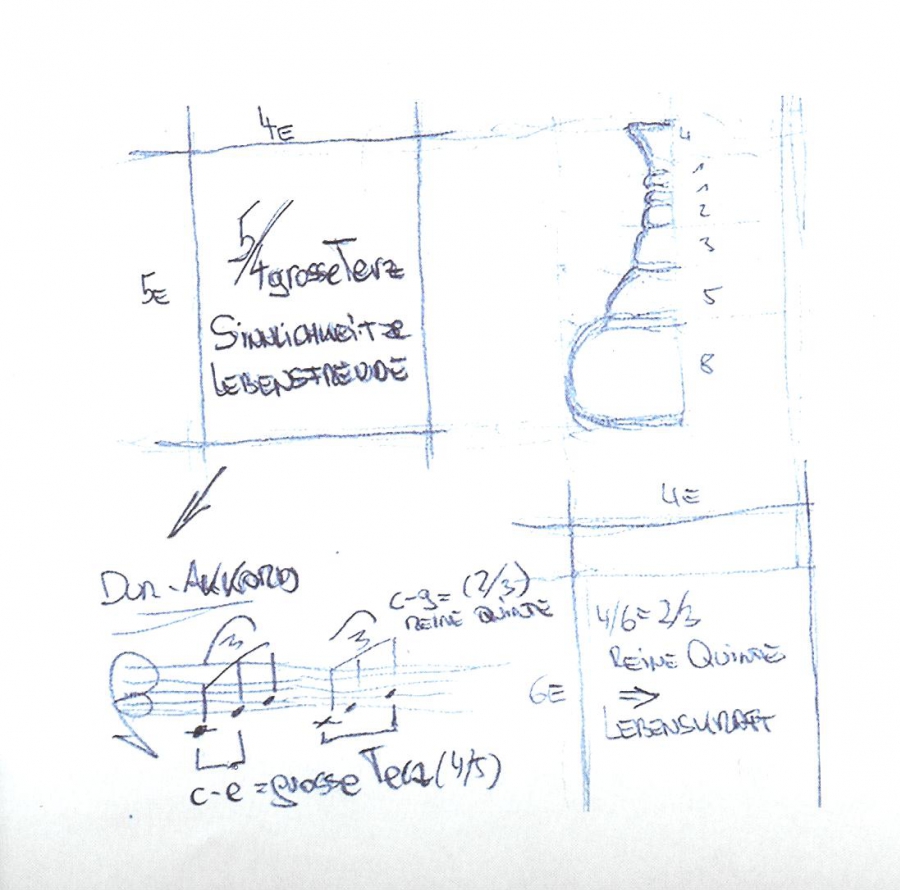 4E
5E
5/4 grosse Terz
SINNLICHKEIT &
LEBENSFREUDE
4
1
1
2
3
5
8
DUR-AKKORD
3
3
c-g = (2/3)
REINE QUINTE
c-e = grosse Terz (4/5)
4E
6E
4/6 = 2/3
REINE QUINTE
⇒
LEBENSKRAFT